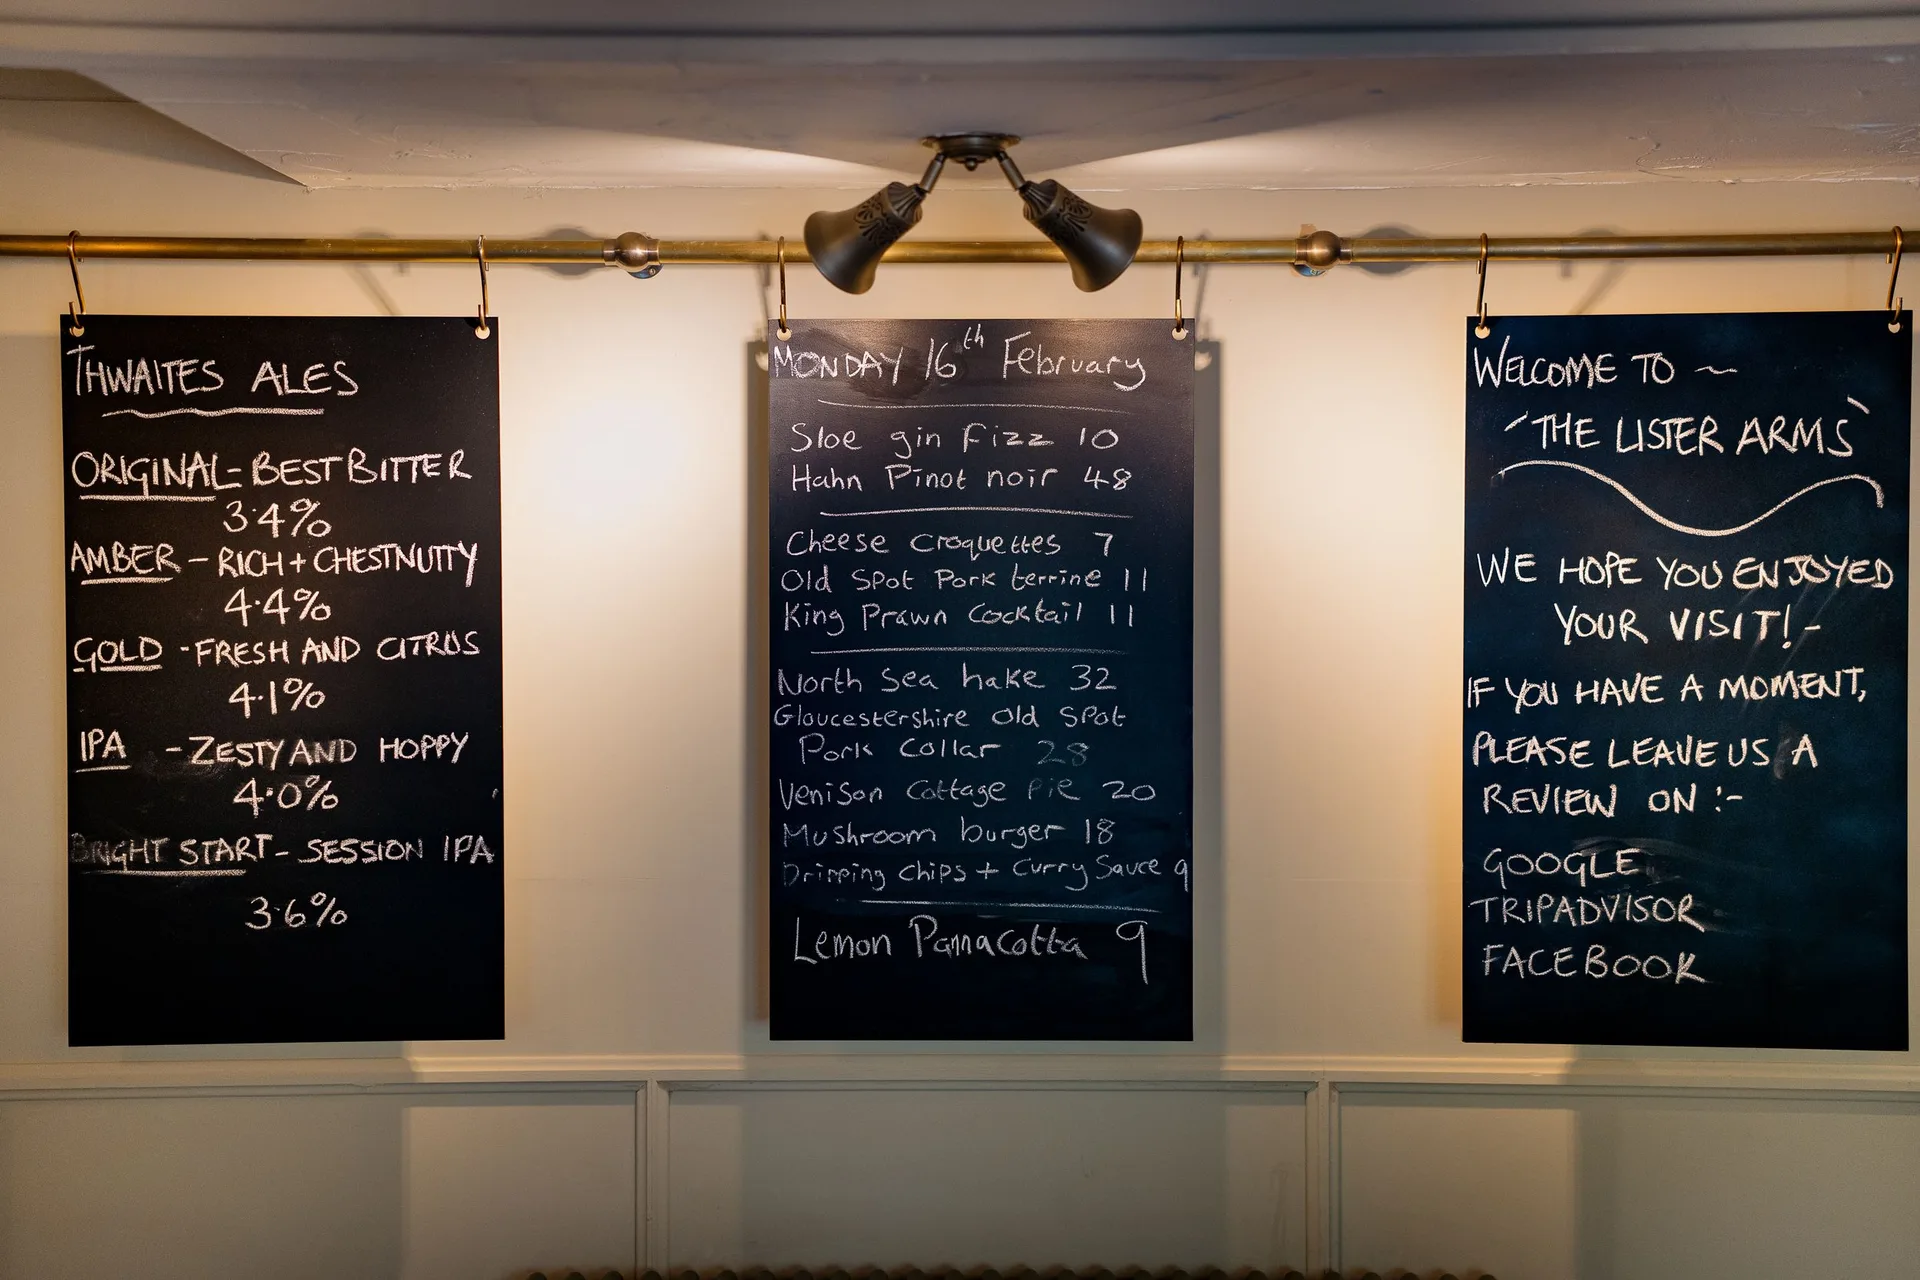 THWAITES ALES
ORIGINAL - BEST BITTER
3.4%
AMBER - RICH + CHESTNUTTY
4.4%
GOLD - FRESH AND CITRUS
4.1%
IPA - ZESTY AND HOPPY
4.0%
BRIGHT START - SESSION IPA
3.6%
MONDAY 16th February
Sloe gin Fizz 10
Hahn Pinot noir 48
Cheese Croquettes 7
Old Spot Pork terrine 11
King Prawn Cocktail 11
North Sea hake 32
Gloucestershire Old Spot
Pork Collar 28
Venison Cottage Pie 20
Mushroom burger 18
Dripping Chips + Curry Sauce 9
Lemon Pannacotta 9
WELCOME TO ~
'THE LISTER ARMS'
WE HOPE YOU ENJOYED
YOUR VISIT! -
IF YOU HAVE A MOMENT,
PLEASE LEAVE US A
REVIEW ON :-
GOOGLE
TRIPADVISOR
FACEBOOK